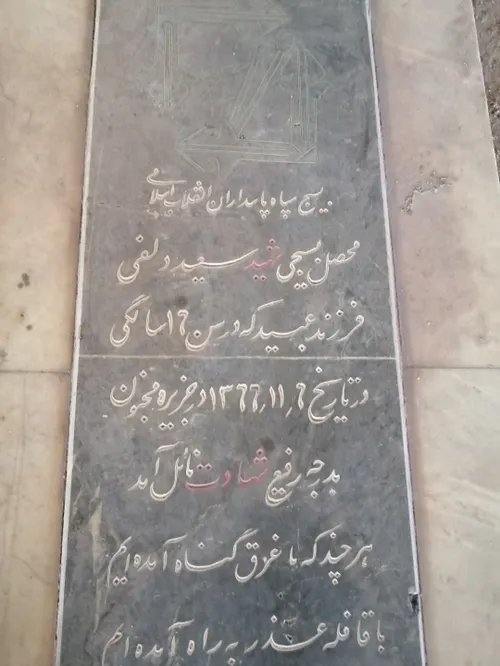 بسیج سپاه پاسداران انقلاب اسلامی
محصل بسیجی شهید سعید دلفی
فرزند عبید که در سن ۱۶ سالگی
در تاریخ ۱۳۶۶٫۱۱٫۶ در جزیره مجنون
بدرجه رفیع شهادت نائل آمد
هر چند که ما غرق گناه آمده ایم
با قافله عذر به راه آمده ایم